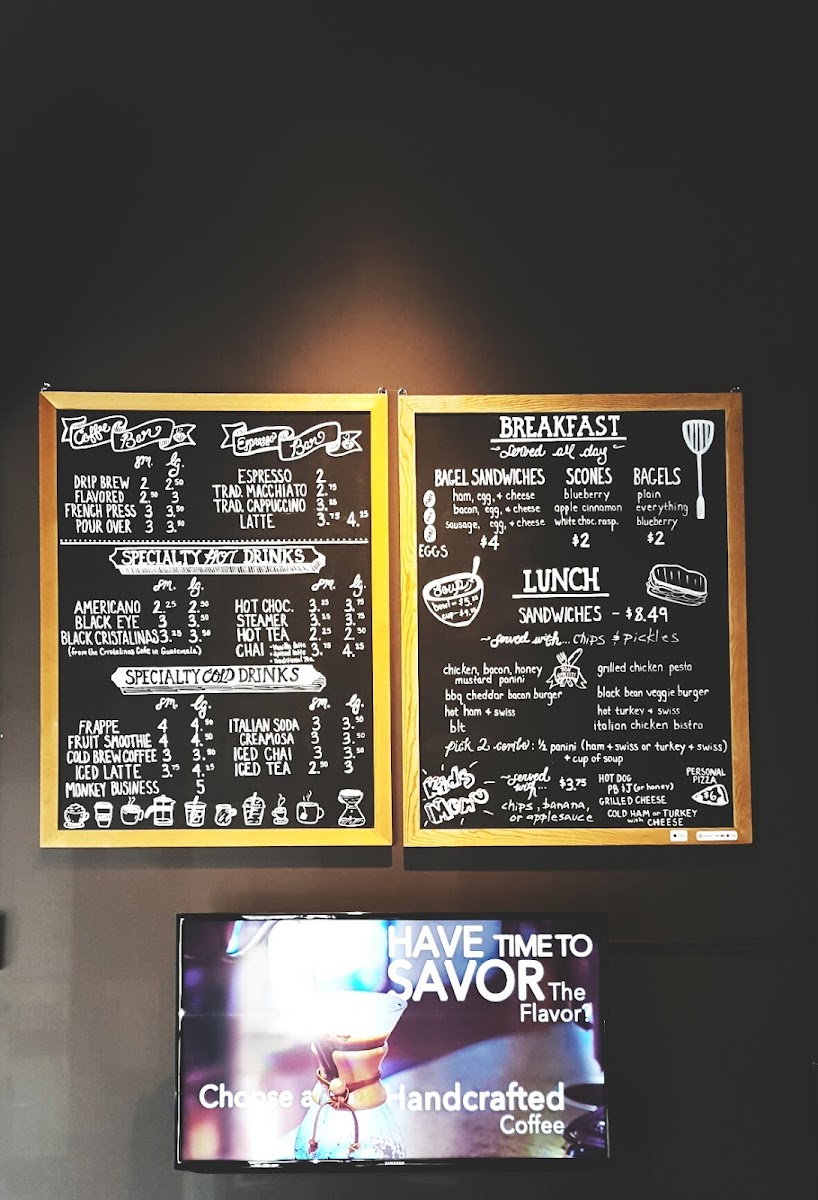 Coffee Bar
sm. lg.
DRIP BREW 2 2.50
FLAVORED 2.50 3
FRENCH PRESS 3 3.50
POUR OVER 3 3.50
Espresso Bar
ESPRESSO 2
TRAD. MACCHIATO 2.75
TRAD. CAPPUCCINO 3.25
LATTE 3.75 4.25
SPECIALTY HOT DRINKS
sm. lg.
AMERICANO 2.25 2.50
BLACK EYE 3 3.50
BLACK CRISTALINAS 3.25 3.50
(from the Cristalinas Cafe in Guatemala)
sm. lg.
HOT CHOC. 3.25 3.75
STEAMER 3.25 3.75
HOT TEA 2.25 2.50
CHAI 3.75 4.25
SPECIALTY COLD DRINKS
sm. lg.
FRAPPE 4 4.50
FRUIT SMOOTHIE 4 4.50
COLD BREW COFFEE 3 3.50
ICED LATTE 3.75 4.25
MONKEY BUSINESS 5
sm. lg.
ITALIAN SODA 3 3.50
CREAMOSA 3 3.50
ICED CHAI 3 3.50
ICED TEA 2.50 3
BREAKFAST
~served all day~
BAGEL SANDWICHES
ham, egg, + cheese
bacon, egg, + cheese
sausage, egg, + cheese
$4
EGGS
SCONES
blueberry
apple cinnamon
white choc. rasp.
$2
BAGELS
plain
everything
blueberry
$2
Soup
LUNCH
SANDWICHES - $8.49
~served with... chips & pickles
chicken, bacon, honey
mustard panini
bbq cheddar bacon burger
hot ham + swiss
blt
grilled chicken pesto
black bean veggie burger
hot turkey + swiss
italian chicken bistro
pick 2 combo: ½ panini (ham + swiss or turkey + swiss)
+ cup of soup
Kids Menu
~served with... $3.75
chips, banana,
or applesauce
HOT DOG
PB & J (or honey)
GRILLED CHEESE
COLD HAM or TURKEY
with CHEESE
PERSONAL
PIZZA
$6
HAVE TIME TO
SAVOR The
Flavor?
Choose a Handcrafted
Coffee
SAMSUNG